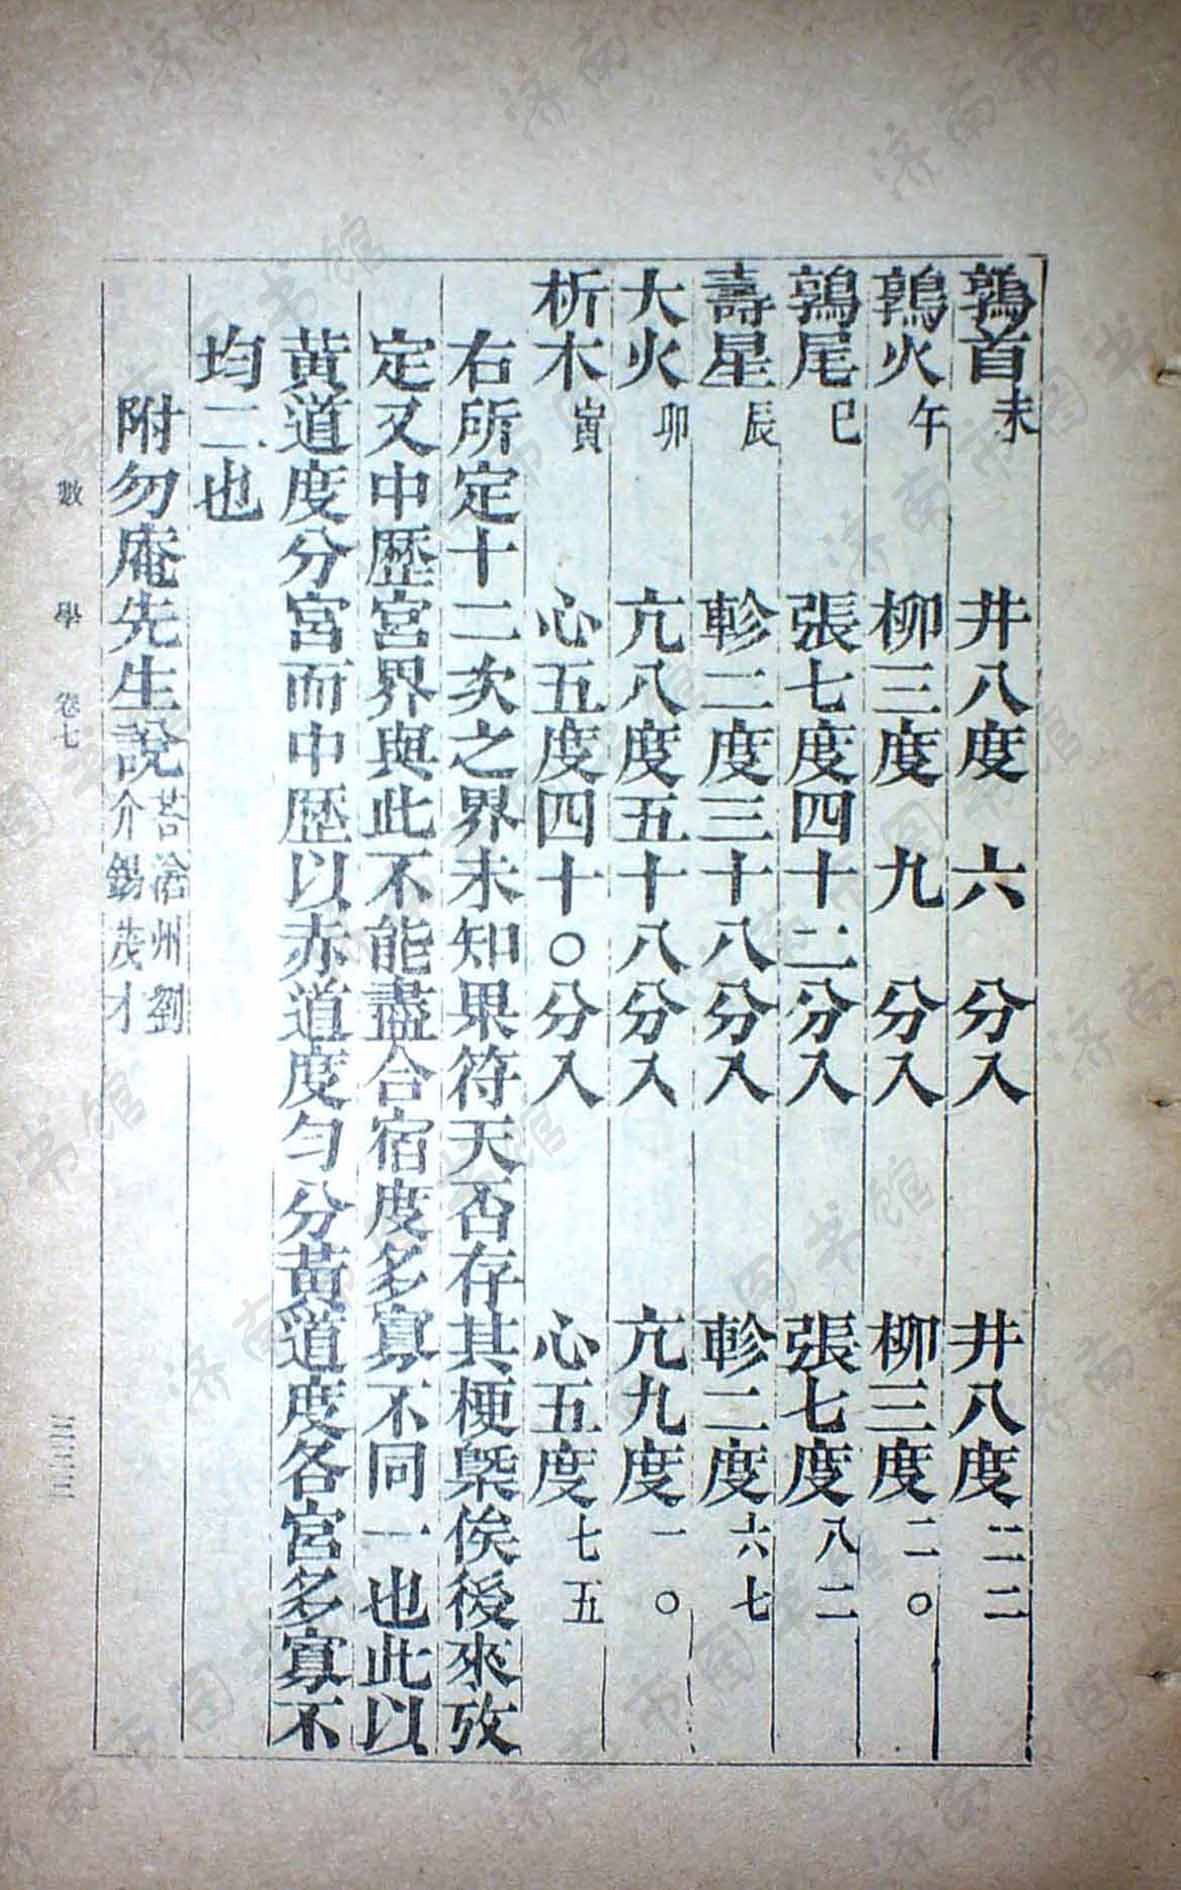 鶉首未 井八度 六 分入 井八度二二
鶉火午 柳三度 九 分入 柳三度二〇
鶉尾巳 張七度四十二分入 張七度八二
壽星辰 軫二度三十八分入 軫二度六七
大火卯 亢八度五十八分入 亢九度一〇
析木寅 心五度四十〇分入 心五度七五
右所定十二次之界未知果符天否存其梗槩俟後來攷
定又中歴宮界與此不能盡合宿度多寡不同一也此以
黃道度分宮而中歴以赤道度勻分黃道度各宮多寡不
均二也
附勿庵先生說荅滄州劉介錫茂才
數學 卷七 三三三
济南市图书馆